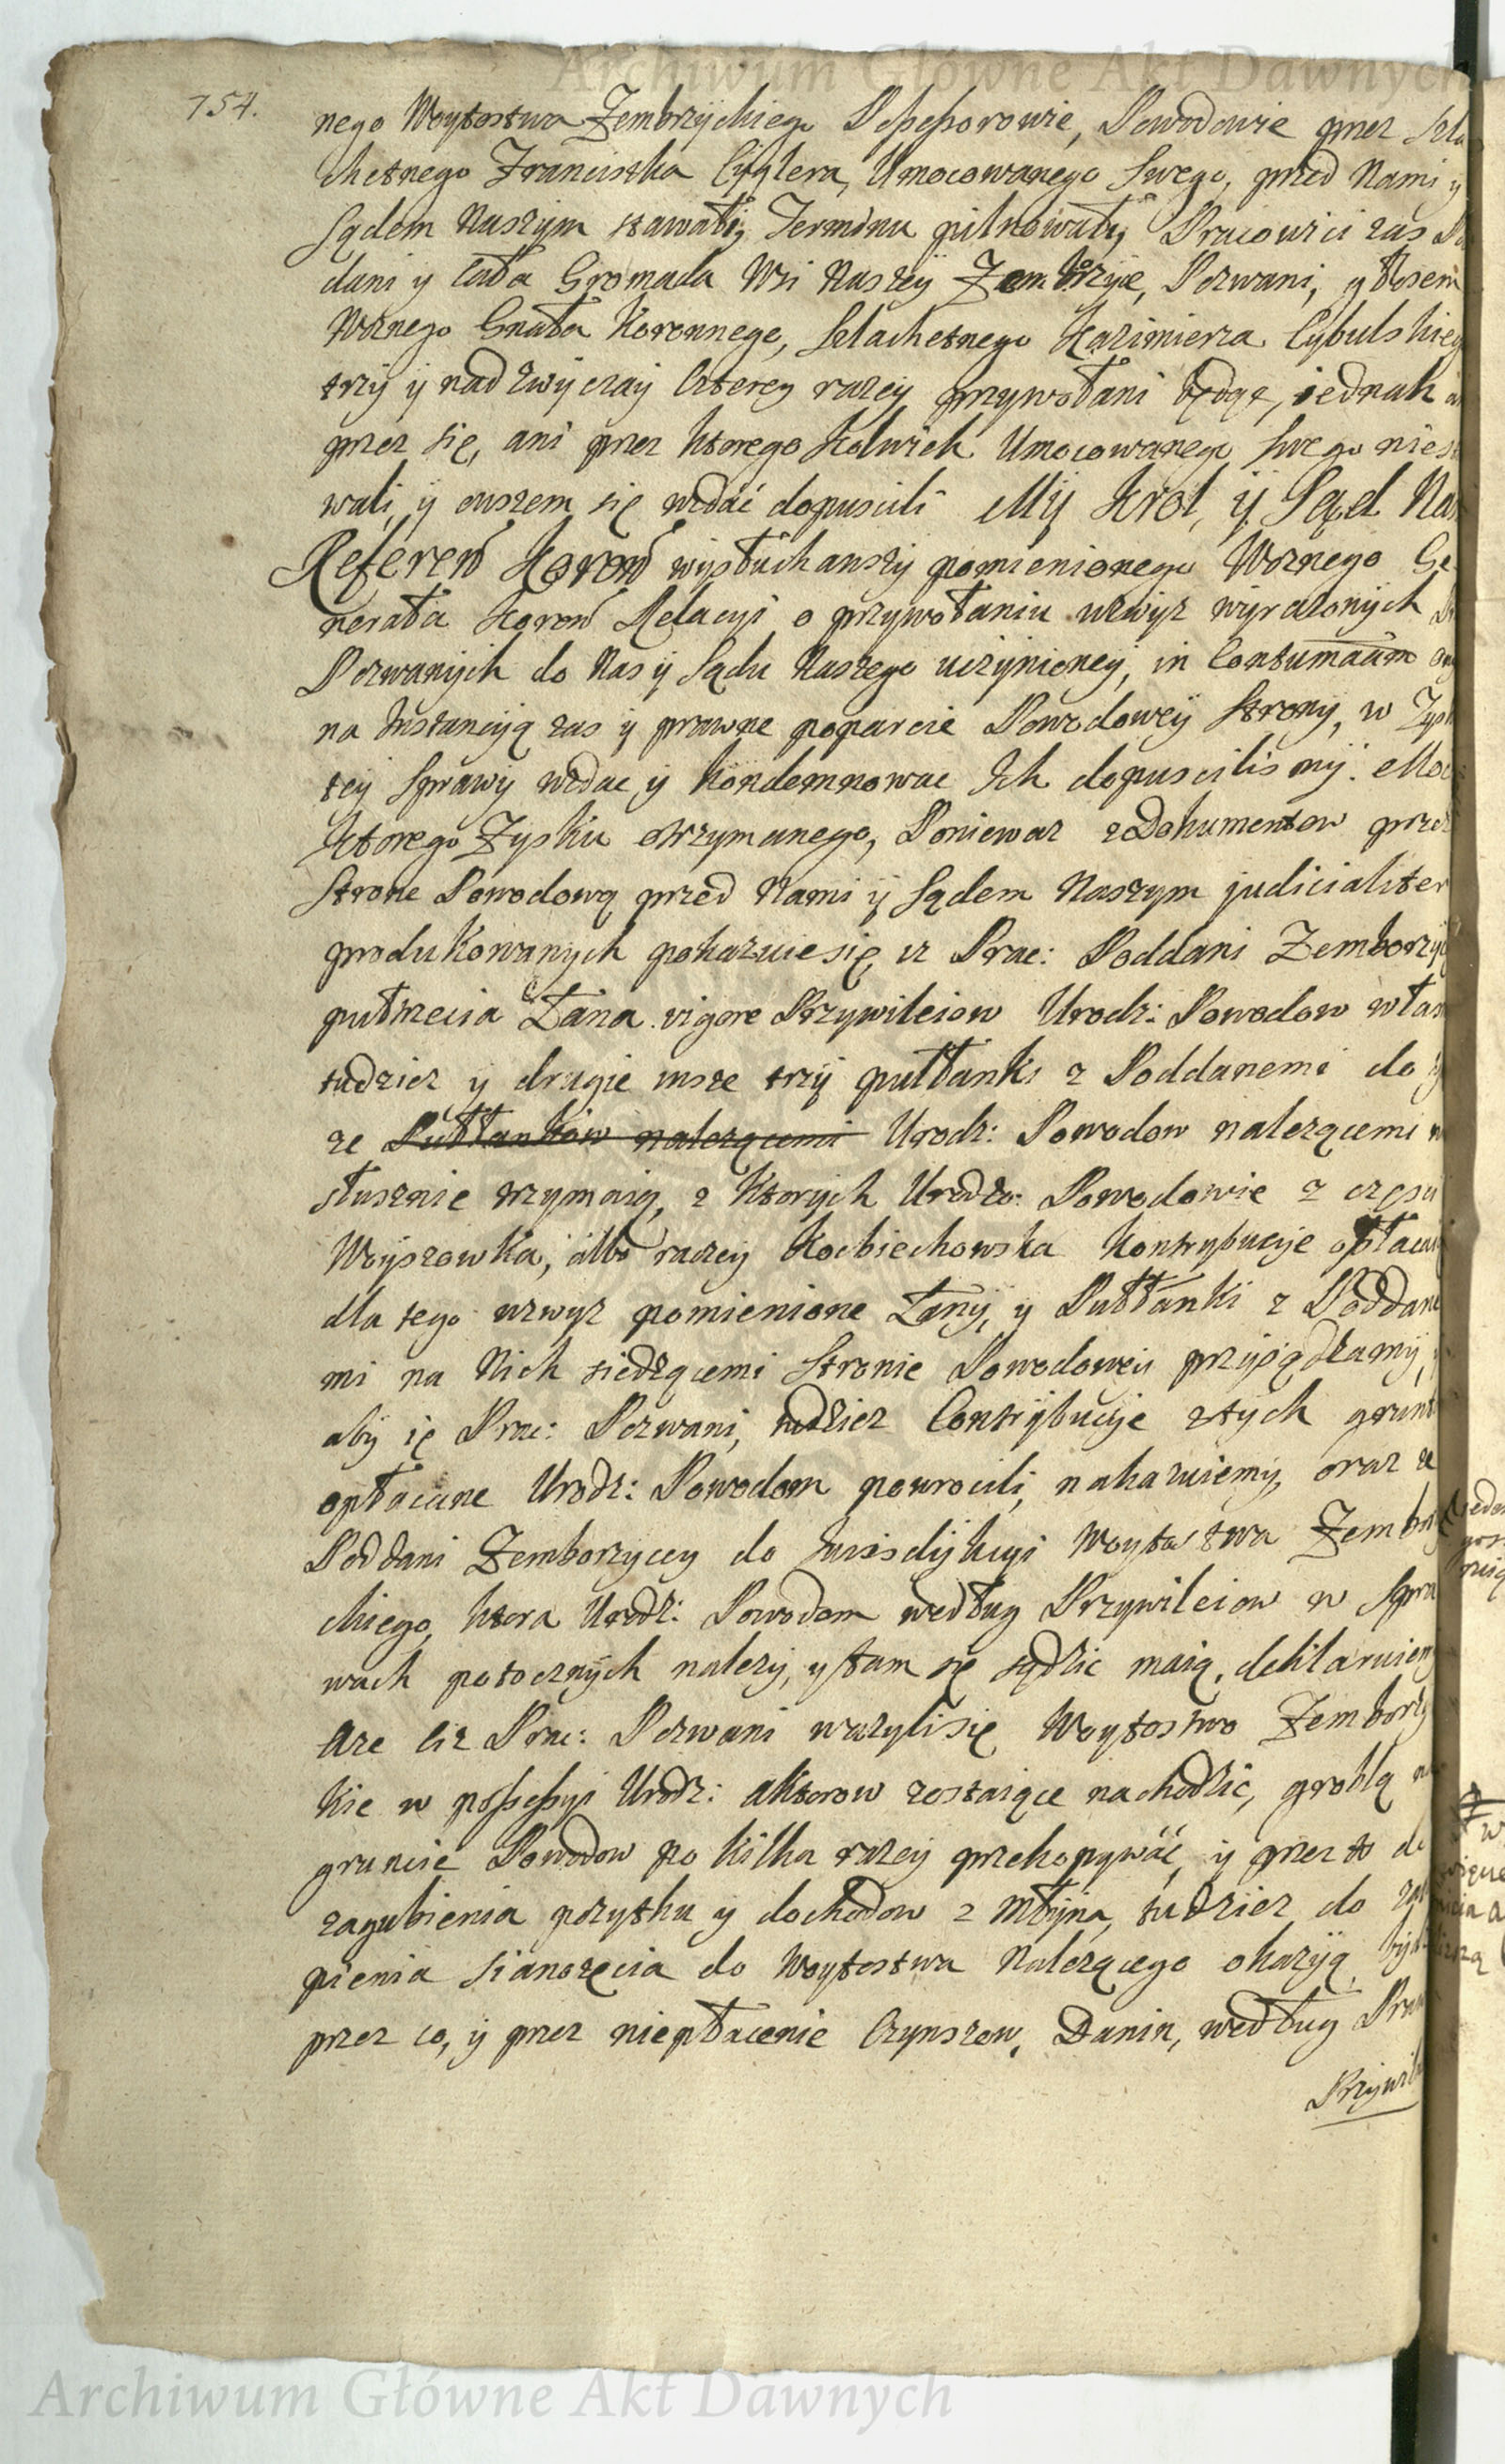 Archiwum Główne Akt Dawnych
754.
nego Woytostwa Zembrzyckiego Possessorowie, Powodowie przez Szla
chetnego Franciszka Cyglera, Umocowanego Swego, przed Nami y
Sądem Naszym stawali, Terminu pilnowali, Pracowici zas Po
dani y cała Gromada Wsi Naszey Zembrzyc, Pozwani, głosem
Woznego Gnała Koronnego, Szlachetnego Kazimierza Cybulskieg
trzy y nad zwyczay czterey razy przywołani będąc, iednak a
przez się, ani przez ktorego kolwiek Umocowanego swego niest
wali, y owszem się wzdać dopuscili My Krol, y Sąd Nasz
Referen Koron wysłuchawszy pomienionego Woznego Ge
nerała Koron Relacyi o przywołaniu wzwyz wyrazonych
Pozwanych do Nas y Sądu Naszego uczynioney, in Contumaciam
na Instancyą zas y prawne poparcie Powodowey Strony, w Zysk
tey Sprawy wzdac y kondemnowac Ich dopuscilismy. Mocą
ktorego Zysku otrzymanego, Poniewaz z Dokumentow przez
Strone Powodową przed Nami y Sądem Naszym judicialiter
produkowanych pokazuie się, iz Prac: Poddani Zemborzy
pułtrzecia Łana vigore Przywileiow Urodz: Powodow włas
tudziez y drugie insze trzy pułłanki z Poddanemi do
ze Pułłankow nalezącemi Urodz: Powodow nalezącemi n
słusznie trzymaią, z ktorych Urodzo: Powodowie z częsci
Woyszowka, albo raczey Kocbiechowska kontrybucye opłacai
dla tego wzwyz pomienione Łany, y Pułłanki z Poddane
mi na Nich siedzącemi Stronie Powodowey przysądzamy,
aby ię Prac: Pozwani, tudziez Contrybucye z tych grunt
opłacane Urodz: Powodom powrocili, nakazuiemy, oraz ze
Poddani Zemborzyccy do Jurisdykcyi Woytostwa Zembrzy
ckiego, ktora Urodz: Powodom według Przywileiow w Spra
wach potocznych nalezy, y tam się sądzic maią, deklaruiemy
Aze ciz Prac: Pozwani wazyli się Woytostwo Zemborzy
kie w possessyi Urodz: Aktorow zostaiące nachodzić, groblą na
gruncie Powodow po kilka razy przekopywać, y przez to do
zagubienia pozytku y dochodow z Młyna, tudziez do zato
pienia sianozęcia do Woytostwa Nalezącego okazyą, bydz
przez co, y przez niepłacenie Czynszow, Danin, według Praw
Przywile
Archiwum Główne Akt Dawnych